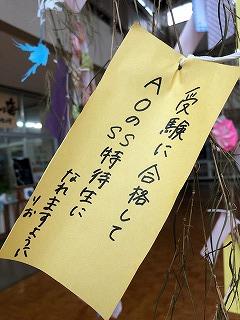 受験に合格して
AOのSS特待生に
なれますように
りお